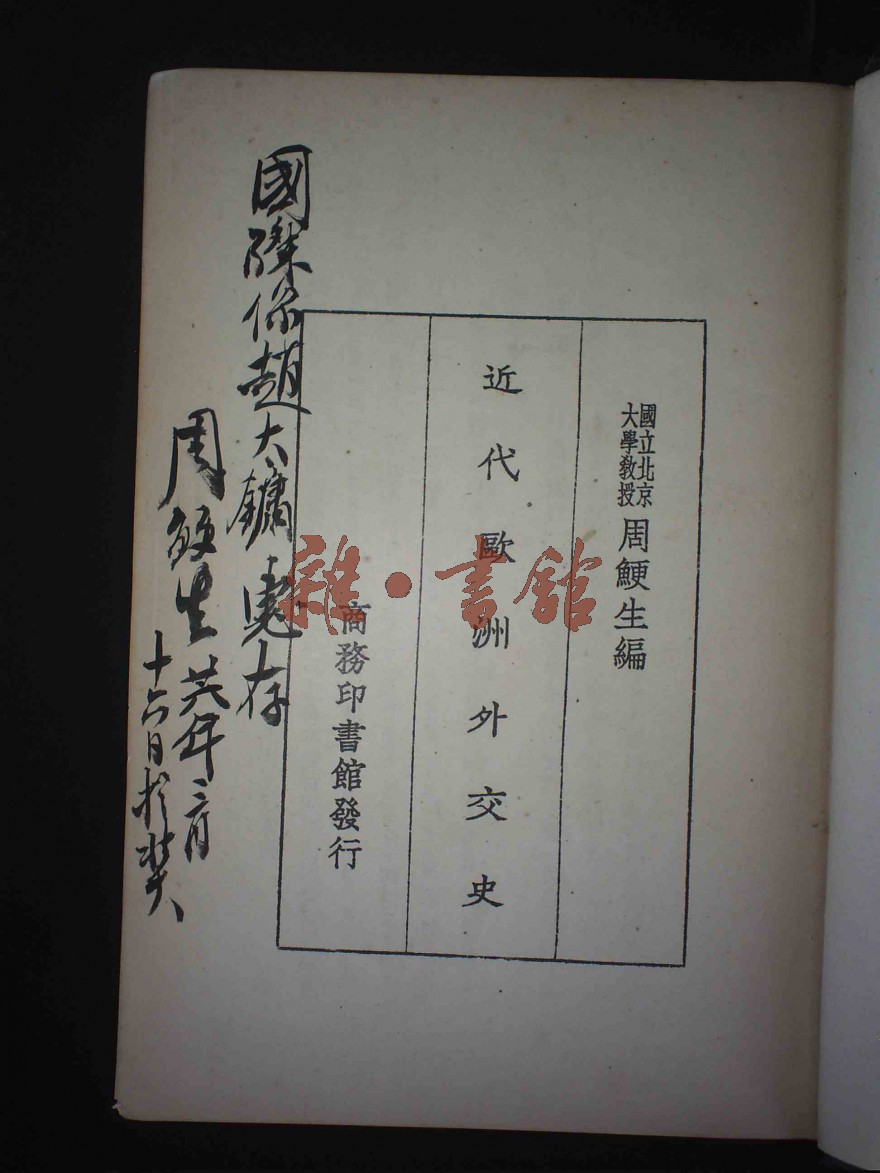 國立北京
大學教授
周鯁生編
近代歐洲外交史
商務印書館發行
國際係趙大鏞惠存
周鯁生 廿六年三月
十六日於
雜·書館